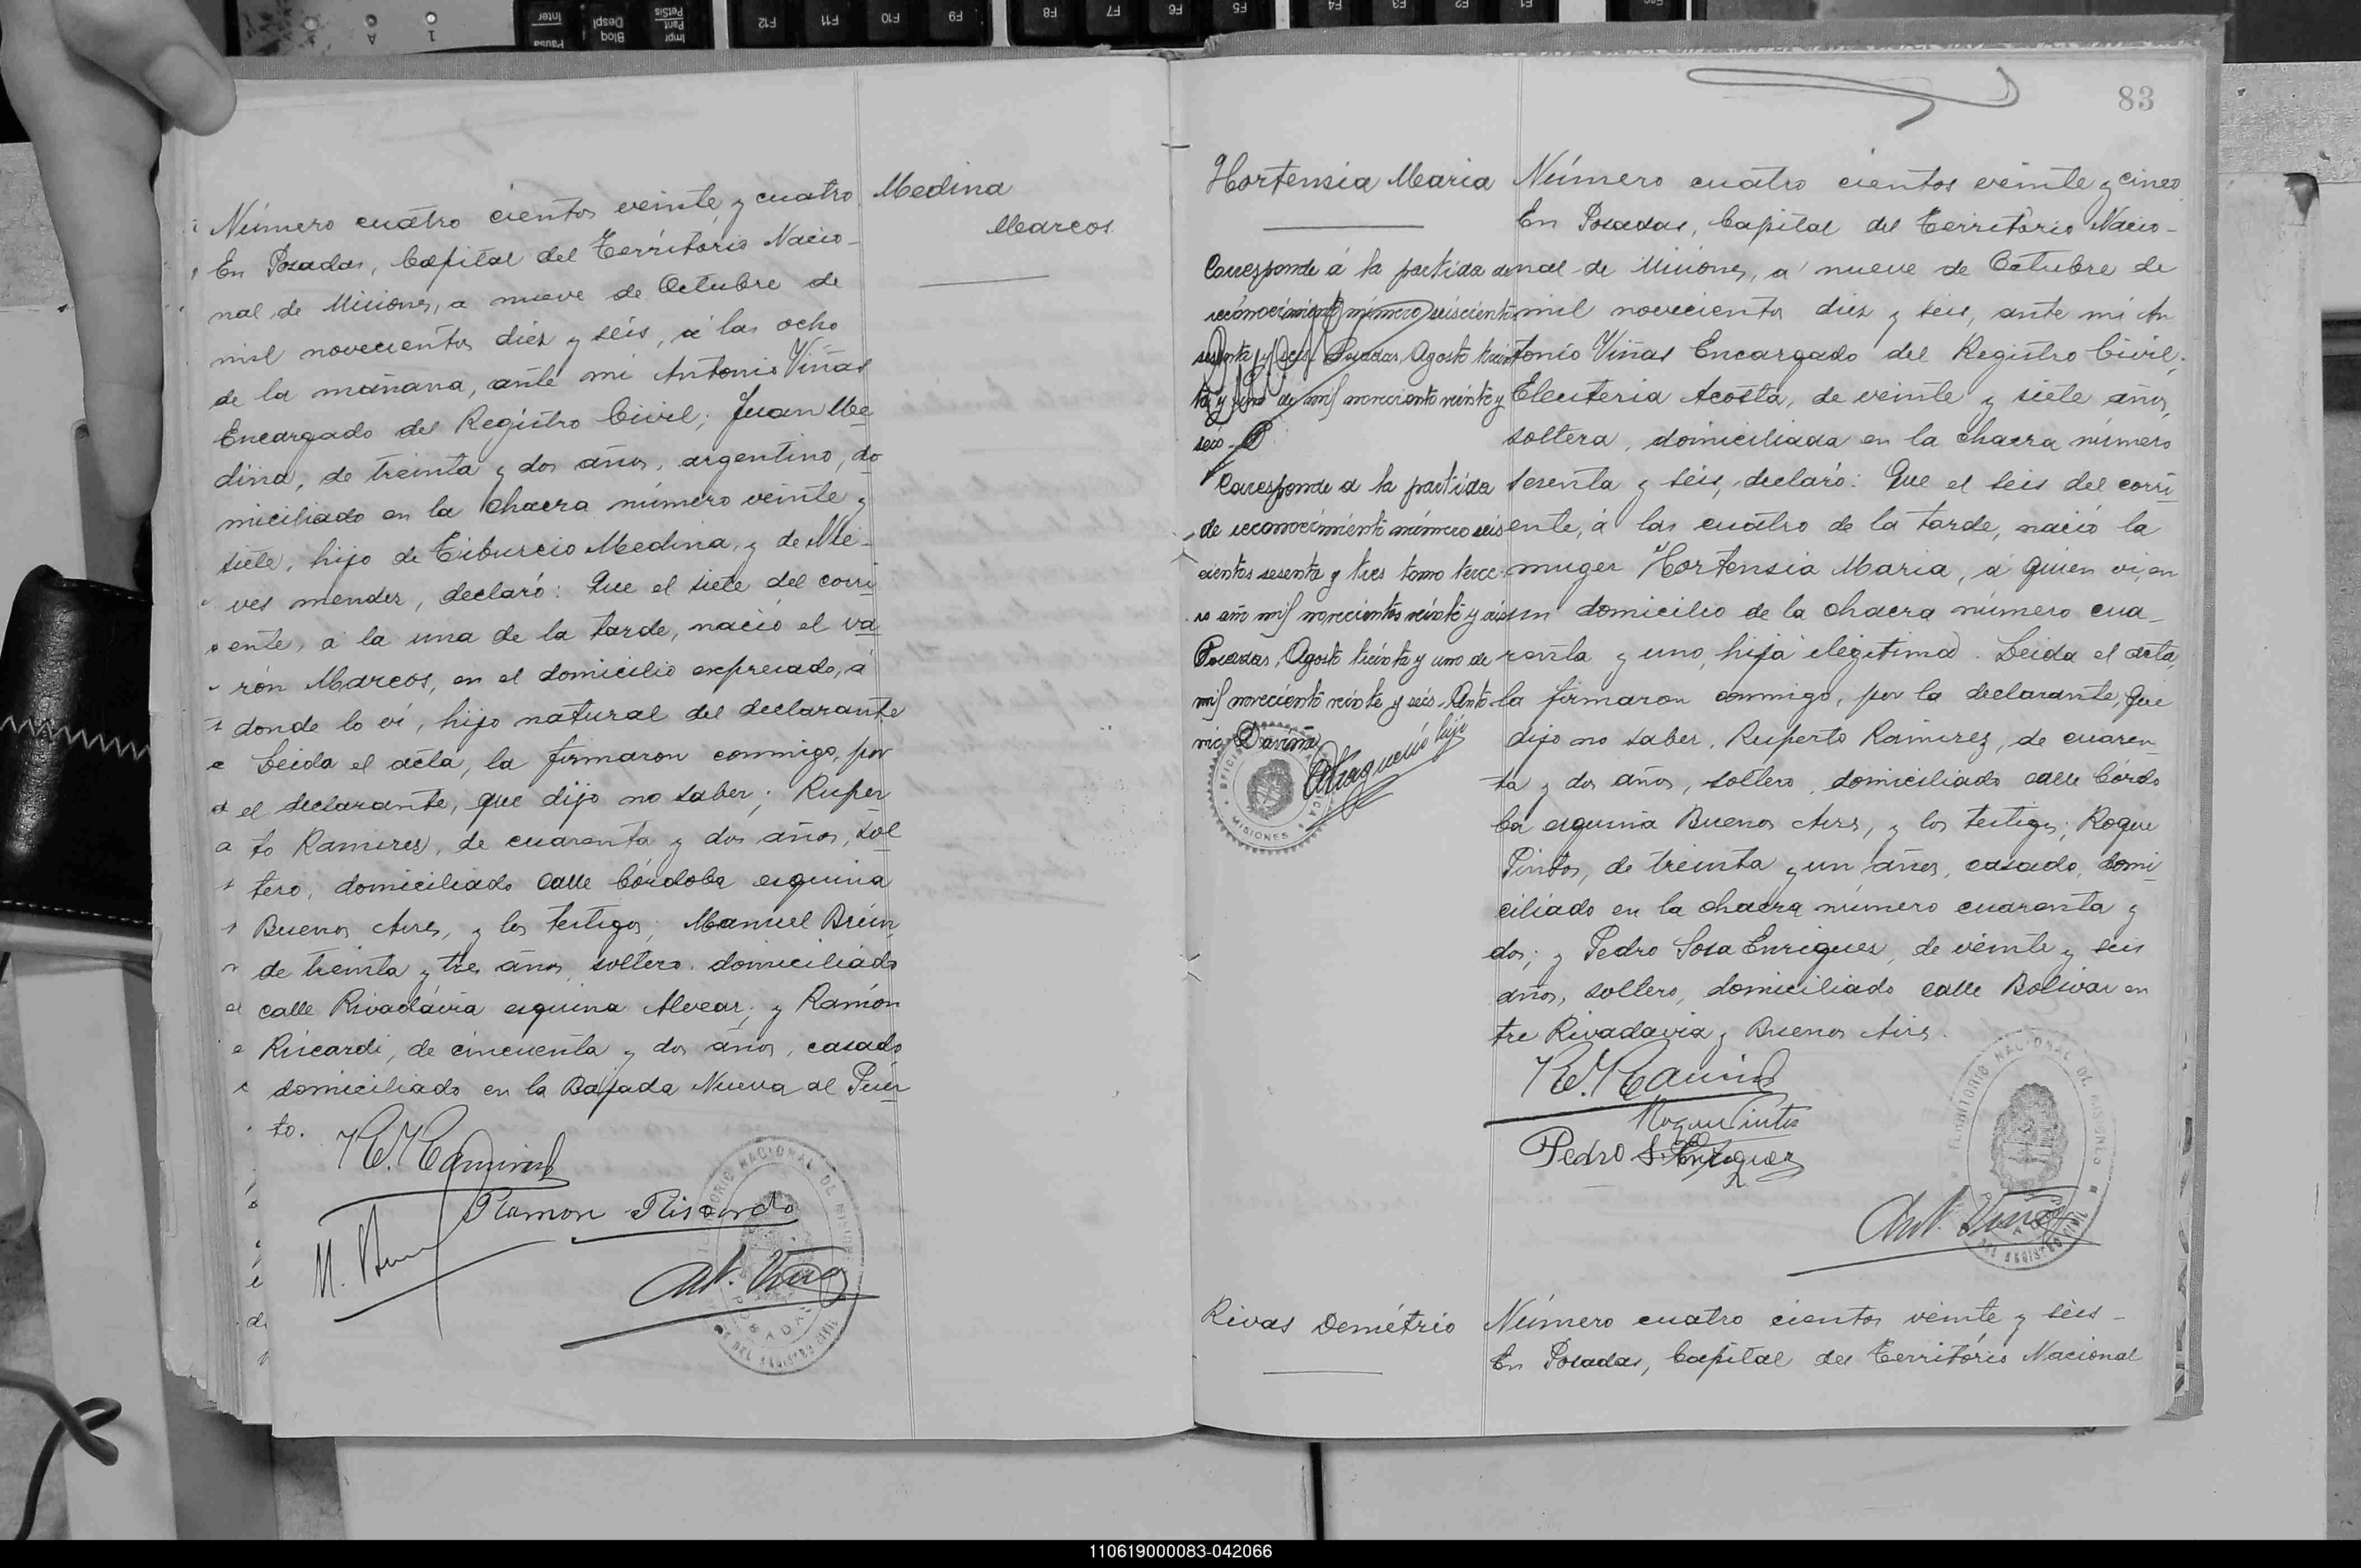 Número cuatro cientos veinte y cuatro
En Posadas, Capital del Territorio Nacio-
nal de Misiones, a nueve de Octubre de
mil novecientos diez y seis, a las ocho
de la mañana, ante mi Antonio Viñas
Encargado del Registro Civil; Juan Me
dina, de treinta y dos años, argentino, do
miciliado en la chacra número veinte y
siete, hijo de Tiburcio Medina, y de Nie-
ves mendez, declaró: Que el siete del corri
ente, a la una de la tarde, nació el va
rón Marcos, en el domicilio expresado, a
donde lo vi, hijo natural del declarante
Leida el acta, la firmaron conmigo, por
el declarante, que dijo no saber; Ruper
to Ramires, de cuarenta y dos años, sol
tero, domiciliado calle Córdoba esquina
Buenos Aires, y los testigos; Manuel Brun
de treinta y tres años, soltero, domiciliado
calle Rivadavia esquina Alvear; y Ramón
Riscardi, de cincuenta y dos años, casado
domiciliado en la Bajada Nueva al Puer
to.
R. Ramirez
Ramon Riscardo
M. Brun
Ant. Viñas
Medina
Marcos
83
Hortensia Maria
Corresponde á la partida de
reconocimiento número seiscientos
sesenta y seis. Posadas, Agosto trein
ta y uno de mil novecientos veinte y
seis
Corresponde a la partida
de reconocimiento número seis
cientos sesenta y tres tomo terce
ro año mil novecientos veinte y seis
Posadas, Agosto treinta y uno de
mil novecientos veinte y seis. Anto
nio Daviña
MISIONES
Número cuatro cientos veinte y cinco
En Posadas, Capital del Territorio Nacio-
nal de Misiones, a nueve de Octubre de
mil novecientos diez y seis, ante mi An
tonio Viñas Encargado del Registro Civil;
Eleuteria Acosta, de veinte y siete años,
soltera, domiciliada en la chacra número
sesenta y seis, declaró: Que el seis del corri
ente, a las cuatro de la tarde, nació la
muger Hortensia Maria, a quien vi, en
su domicilio de la chacra número cua-
renta y uno, hija ilegitima. Leida el acta,
la firmaron conmigo, por la declarante, que
dijo no saber, Ruperto Ramirez, de cuaren
ta y dos años, soltero, domiciliado calle Córdo
ba esquina Buenos Aires, y los testigos; Roque
Pintos, de treinta y un años, casado, domi
ciliado en la chacra número cuarenta y
dos; y Pedro Sosa Enriquez, de veinte y seis
años, soltero, domiciliado calle Bolivar en
tre Rivadavia y Buenos Aires.
R. Ramirez
Roque Pintos
Pedro S. Enriquez
Ant. Viñas
Rivas Demétrio
Número cuatro cientos veinte y seis-
En Posadas, Capital del Territorio Nacional
110619000083-042066